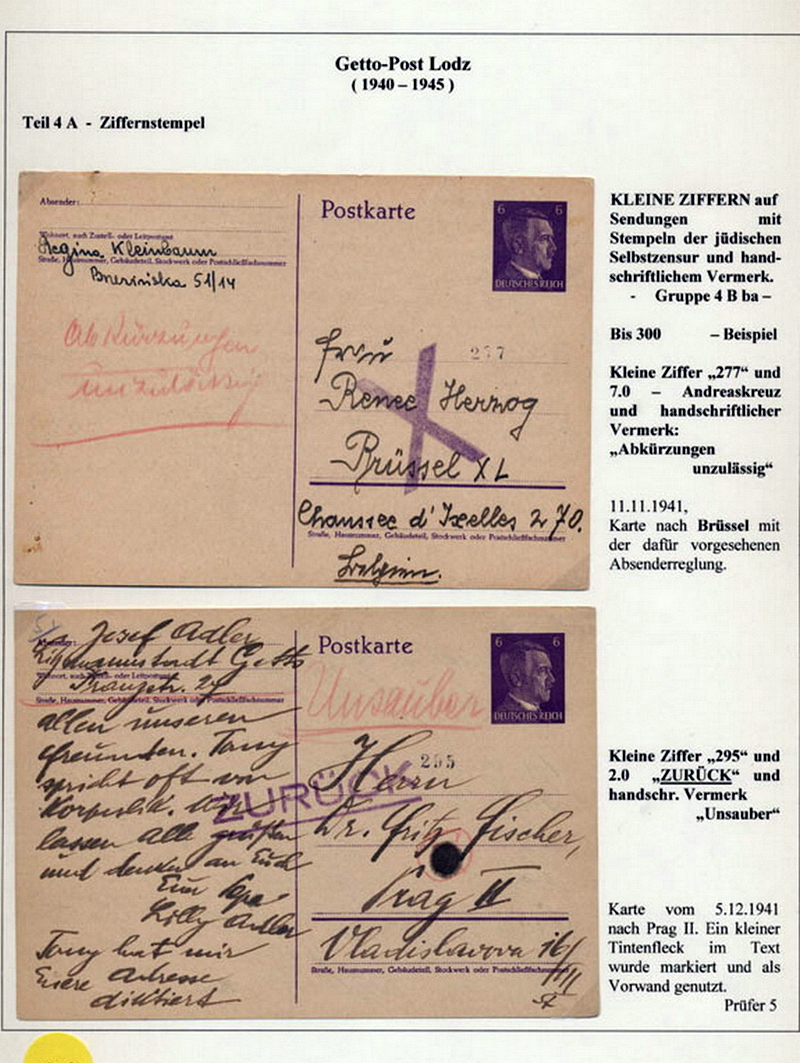 Getto-Post Lodz
( 1940 – 1945 )
Teil 4 A - Ziffernstempel
Absender:
Wohnort, auch Zustell- oder Leitpostamt
Regina Kleinbaum
Straße, Hausnummer, Gebäudeteil, Stockwerk oder Postschließfachnummer
Brzezinska 51/14
Abkürzungen
unzulässig
Postkarte
6 6
DEUTSCHES REICH
Frau
277
Renee Herzog
Brüssel XL
Chaussee d'Ixelles 270.
Straße, Hausnummer, Gebäudeteil, Stockwerk oder Postschließfachnummer
Belgien.
KLEINE ZIFFERN auf
Sendungen mit
Stempeln der jüdischen
Selbstzensur und hand-
schriftlichem Vermerk.
- Gruppe 4 B ba –
Bis 300 – Beispiel
Kleine Ziffer „277“ und
7.0 – Andreaskreuz
und handschriftlicher
Vermerk:
„Abkürzungen
unzulässig“
11.11.1941,
Karte nach Brüssel mit
der dafür vorgesehenen
Absenderreglung.
Josef Adler
Absender:
Litzmannstadt Getto
Wohnort, auch Zustell- oder Leitpostamt
Straße, Hausnummer, Gebäudeteil, Stockwerk oder Postschließfachnummer
allen unseren
Freunden. Tomy
spricht oft von
ZURÜCK
lassen alle grüßen
und denken an Euch
Lilly Adler
Tomy hat mir
Eure Adresse
diktiert
Postkarte
6 6
DEUTSCHES REICH
Unsauber
Herrn
295
Dr. Fritz Fischer,
Prag II
Vladislavova 16/
Straße, Hausnummer, Gebäudeteil, Stockwerk oder Postschließfachnummer
III
Kleine Ziffer „295“ und
2.0 „ZURÜCK“ und
handschr. Vermerk
„Unsauber“
Karte vom 5.12.1941
nach Prag II. Ein kleiner
Tintenfleck im Text
wurde markiert und als
Vorwand genutzt.
Prüfer 5